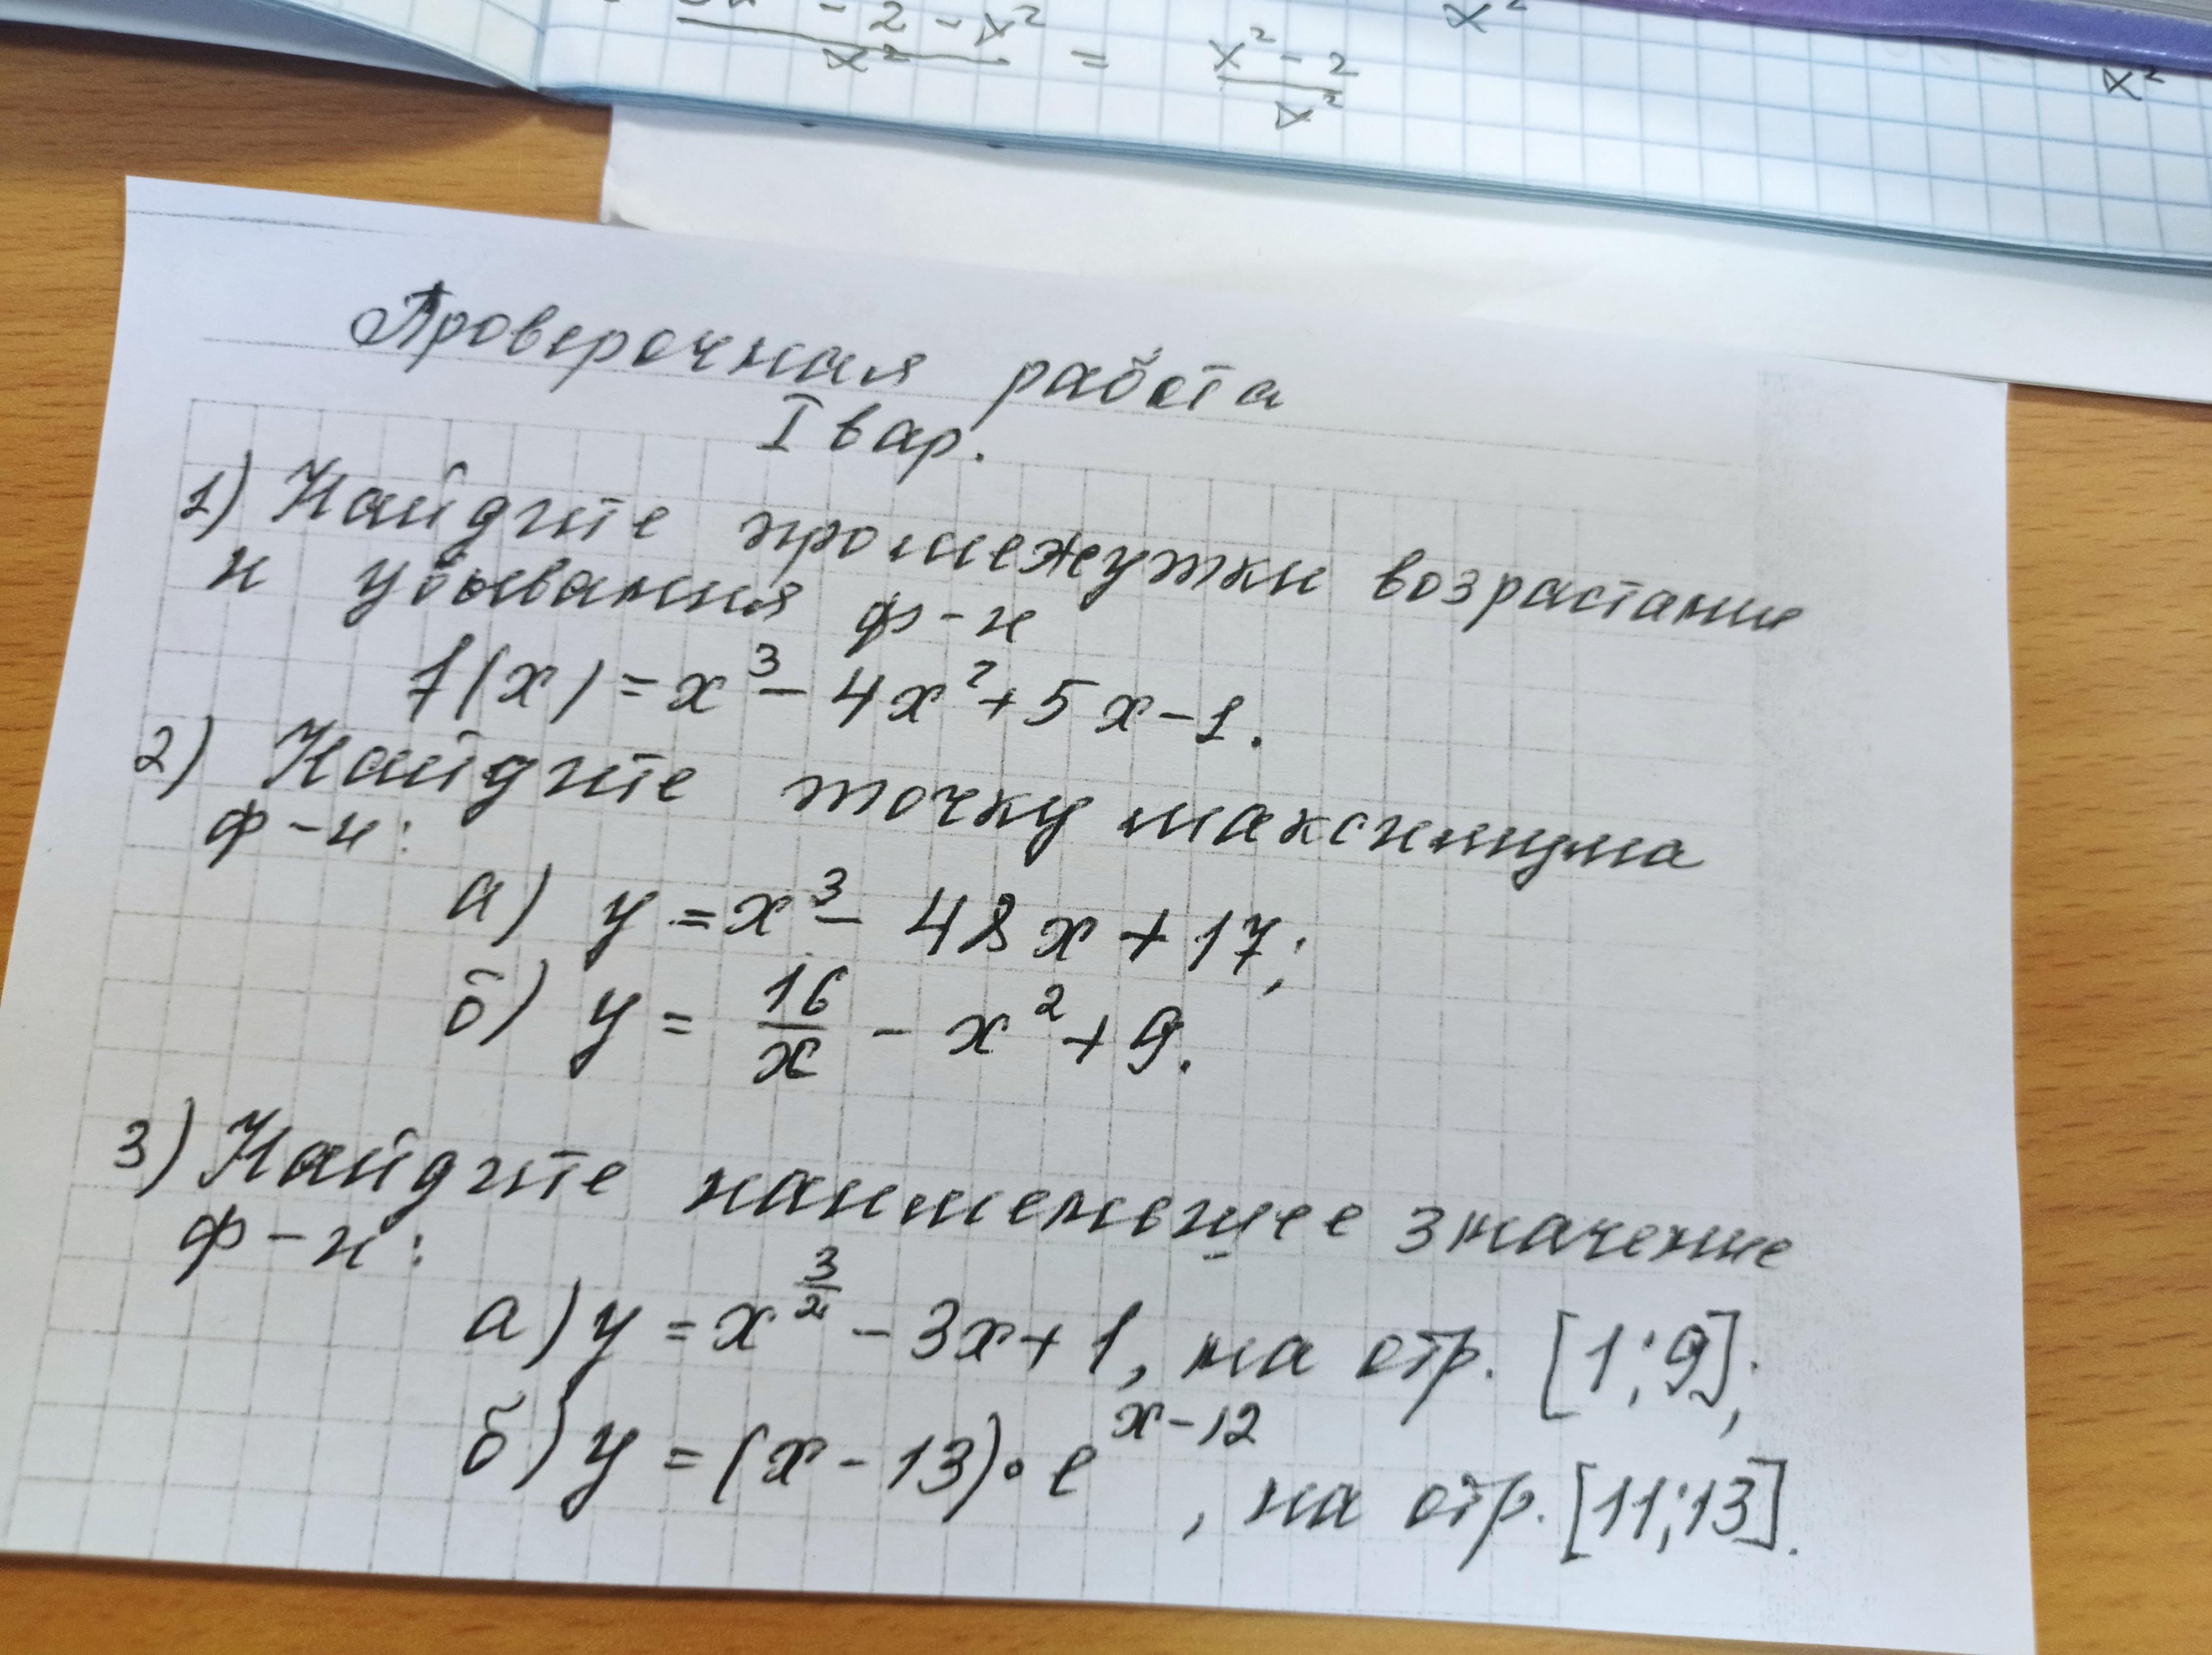 - 2 - x² / x² = x² - 2 / x²
x²
x²
Проверочная работа
I вар.
1) Найдите промежутки возрастание
и убывания ф-и
f(x) = x³ - 4x² + 5x - 1.
2) Найдите точку максимума
ф-и:
а) y = x³ - 48x + 17;
б) y = 16/x - x² + 9.
3) Найдите наименьшее значение
ф-и:
а) y = x^(3/2) - 3x + 1, на отр. [1; 9];
б) y = (x - 13) · e^(x-12), на отр. [11; 13].